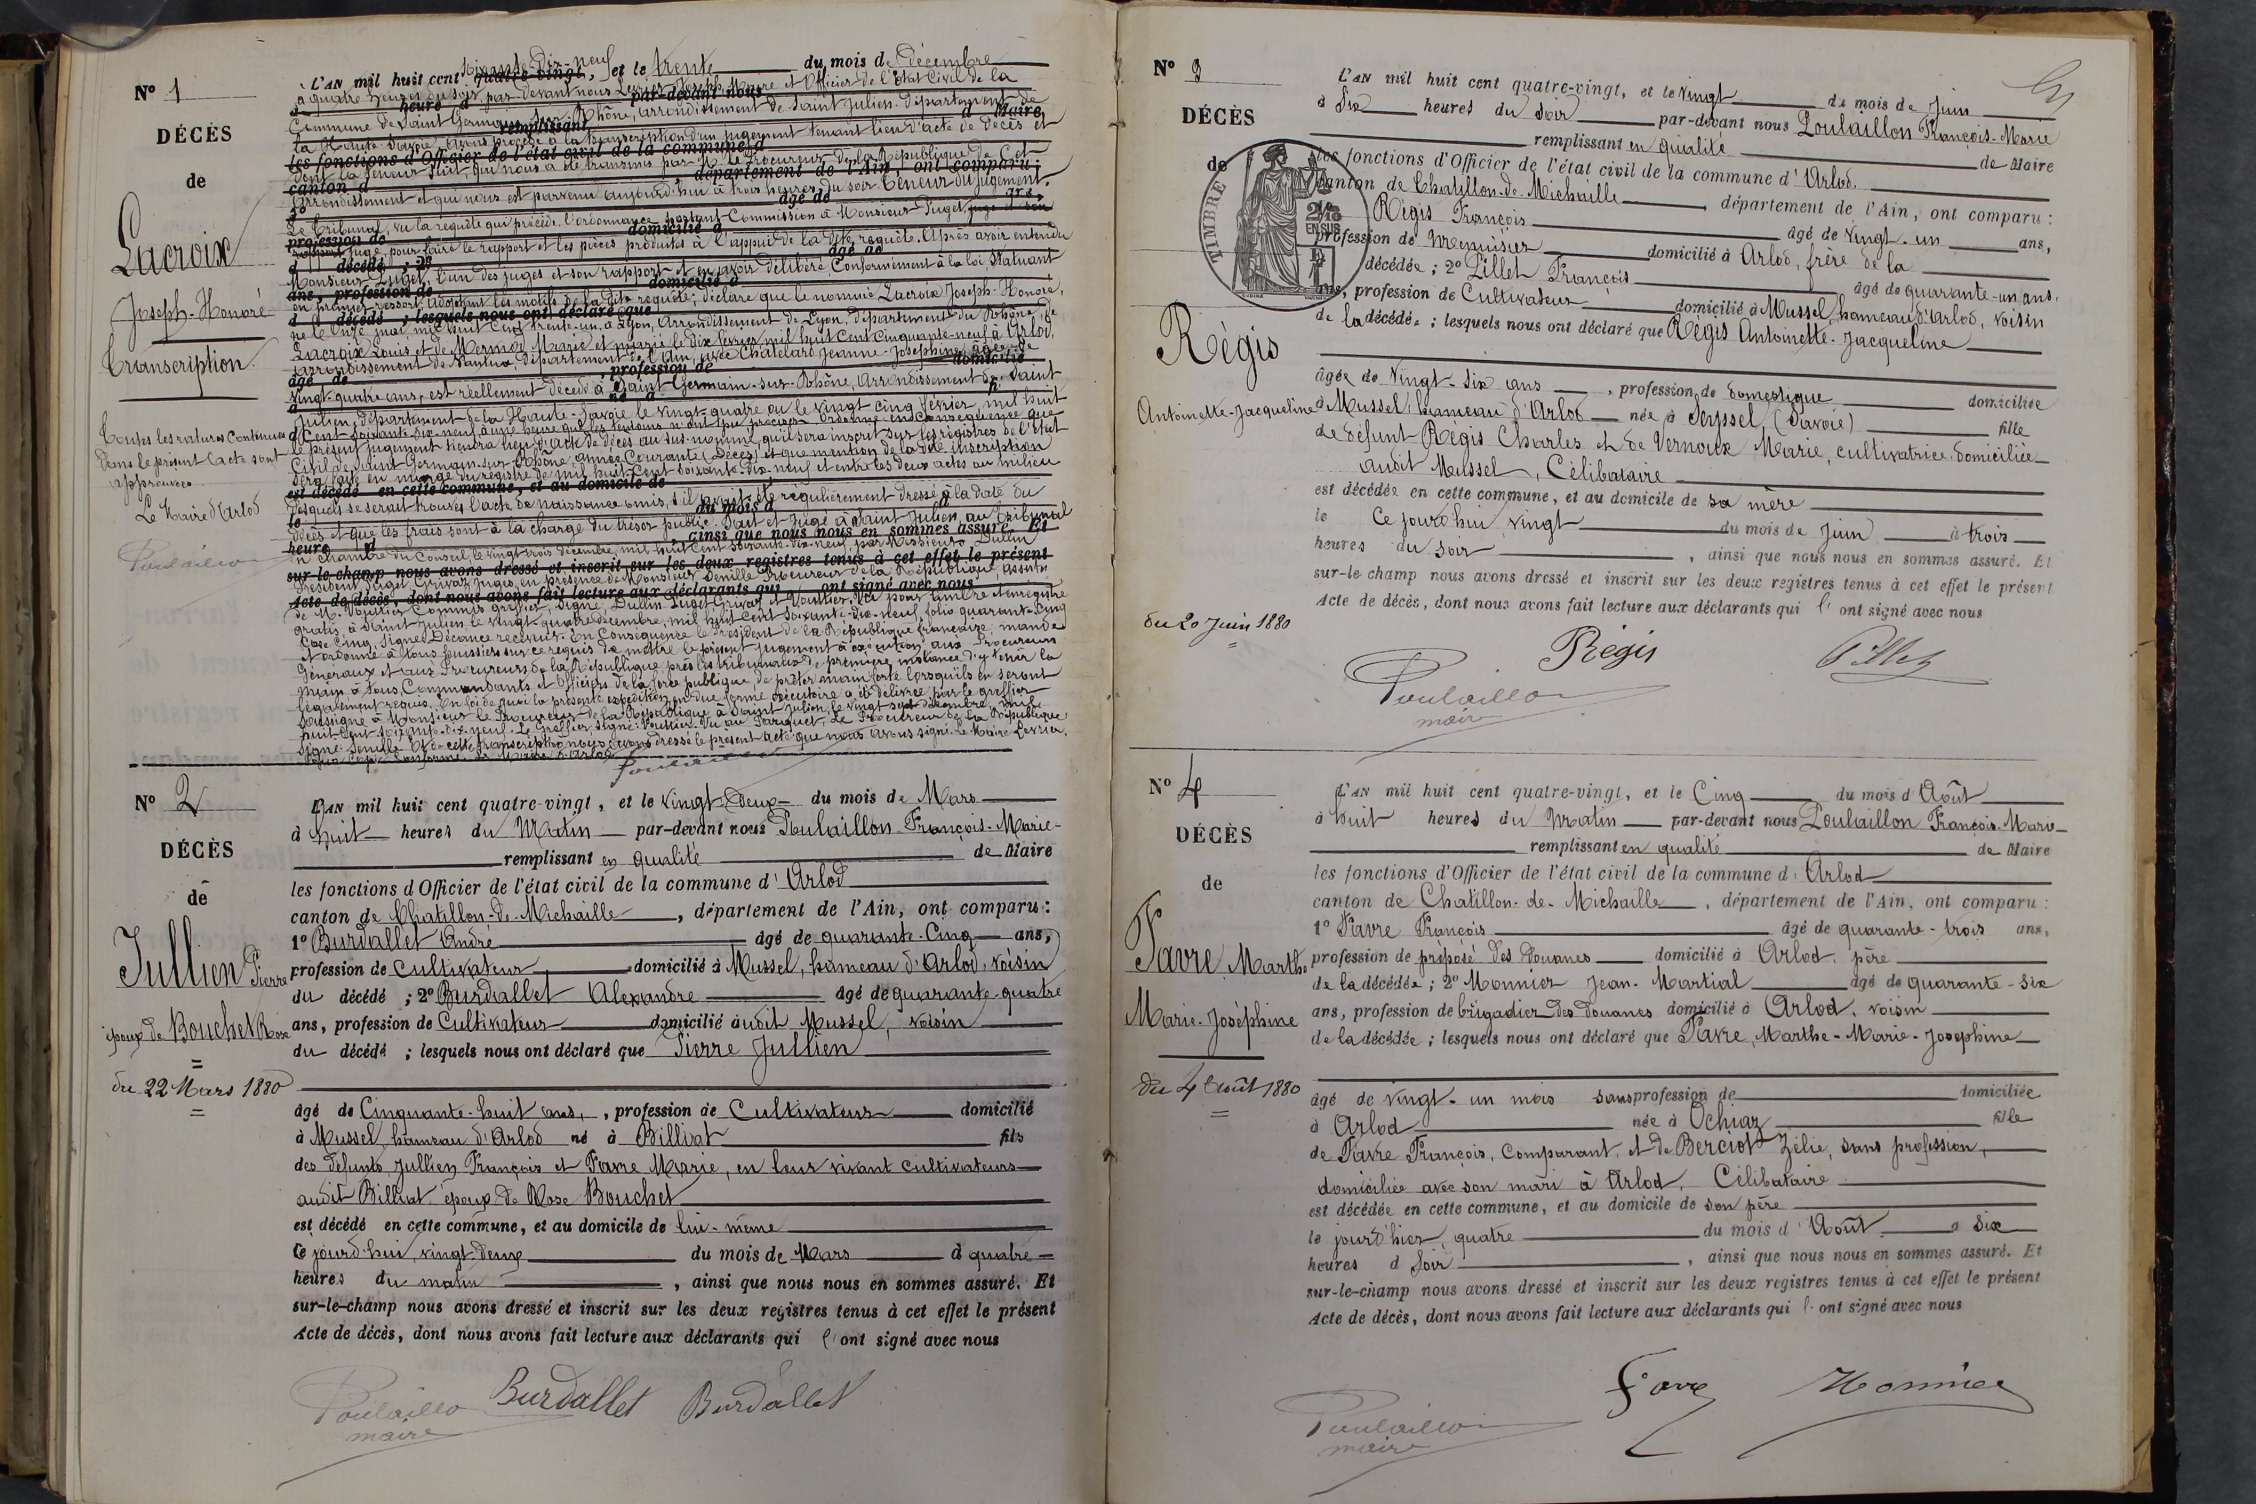 Nº 1
DÉCÈS
de
Lacroix
Joseph-Honoré
Transcription.
Toutes les ratures contenues
dans le présent acte sont
approuvées
Le Maire d'Arlod
Poulaillon
L'AN mil huit cent quatre-vingt, soixante-dix-neuf, et le trente du mois de Décembre
à quatre heures du soir, par devant nous Joseph, Maire et Officier de l'état civil de la
Commune de Saint Germain-sur-Rhône, arrondissement de Saint Julien, département de
la Haute-Savoie, avons procédé à la transcription d'un jugement tenant lieu d'acte de décès et
dont la teneur suit qui nous a été transmis par M. le Procureur de la République de cet
arrondissement et qui nous est parvenu aujourd'hui à trois heures du soir. Teneur du jugement.
Le Tribunal, vu la requête qui précède, l'ordonnance portant Commission à Monsieur Puget, juge
pour faire le rapport et les pièces produites à l'appui de la dite requête. Après avoir entendu
Monsieur Puget, l'un des juges et son rapport et en avoir délibéré conformément à la loi, statuant
en premier ressort, adoptant les motifs de la dite requête; déclare que le nommé Lacroix Joseph-Honoré,
né le onze mai mil huit cent trente-un, à Lyon, Arrondissement de Lyon, département du Rhône, de
Lacroix Louis et de Mermod Marie et marié le dix février mil huit cent cinquante-neuf à Arlod,
arrondissement de Nantua, département de l'Ain, avec Chatelard Jeanne-Joséphine, âgée de
vingt-quatre ans, est réellement décédé à Saint Germain-sur-Rhône, Arrondissement de Saint
Julien, département de la Haute-Savoie le vingt-quatre ou le vingt cinq février mil huit
Cent soixante-dix-neuf à une heure que les témoins n'ont pu préciser. Ordonne en conséquence que
le présent jugement tiendra lieu d'acte de décès au sus-nommé, qu'il sera inscrit sur les registres de l'état
civil de Saint Germain-sur-Rhône, année courante (Décès) et que mention de la dite inscription
sera faite en marge du registre de mil huit cent soixante-dix-neuf et entre les deux actes au milieu
desquels se serait trouvé l'acte de naissance omis, s'il avait été régulièrement dressé à la date du
décès et que les frais sont à la charge du trésor public. Fait et Jugé à Saint Julien, au Tribunal
en chambre du conseil, le vingt trois décembre, mil huit cent soixante-dix-neuf, par Messieurs Dullin
Président, Puget, juges, en présence de Monsieur Procureur de la République, assisté
de M. Vauthier Commis greffier, Signé, Dullin, Puget et Vauthier. Vu pour timbre et enregistré
gratis, à Saint Julien le vingt quatre décembre, mil huit cent soixante-dix-neuf, folio quarante-cinq
Case cinq, signé receveur. En Conséquence le Président de la République française, mande
et ordonne à tous huissiers sur ce requis de mettre le présent jugement à exécution, aux Procureurs
Généraux et aux Procureurs de la République près les tribunaux de première instance d'y tenir la
main à tous Commandants et Officiers de la force publique de prêter main forte lorsqu'ils en seront
légalement requis. En foi de quoi la présente expédition en due forme exécutoire a été délivrée par le greffier
soussigné à Monsieur le Procureur de la République à Saint Julien, le vingt sept décembre, mil
huit cent soixante-dix-neuf. Le Greffier signé: Vauthier. Vu au Parquet, Le Procureur de la République
signé. Et de cette transcription nous avons dressé le présent acte que nous avons signé. Le Maire
Pour copie conforme Le Maire d'Arlod Poulaillon
Nº 2
DÉCÈS
de
Jullien Pierre
époux de Bouchet Rose
du 22 Mars 1880
L'AN mil huit cent quatre-vingt, et le vingt-deux du mois de Mars
à huit heures du Matin par-devant nous Poulaillon François-Marie
remplissant en qualité de Maire
les fonctions d'Officier de l'état civil de la commune d'Arlod
canton de Chatillon-de-Michaille, département de l'Ain, ont comparu:
1º Burdallet André âgé de quarante-Cinq ans,
profession de Cultivateur domicilié à Mussel, hameau d'Arlod, voisin
du décédé; 2º Burdallet Alexandre âgé de quarante-quatre
ans, profession de Cultivateur domicilié audit Mussel, voisin
du décédé; lesquels nous ont déclaré que Pierre Jullien
âgé de Cinquante-huit ans, profession de Cultivateur domicilié
à Mussel, hameau d'Arlod né à Billiat fils
des défunts Jullien François et Favre Marie, en leur vivant cultivateurs
audit Billiat époux de Rose Bouchet
est décédé en cette commune, et au domicile de lui-même
Ce jourd'hui, vingt-deux du mois de Mars à quatre
heures du matin, ainsi que nous nous en sommes assuré. Et
sur-le-champ nous avons dressé et inscrit sur les deux registres tenus à cet effet le présent
Acte de décès, dont nous avons fait lecture aux déclarants qui l'ont signé avec nous
Poulaillon Burdallet Burdallet
maire
Nº 3
DÉCÈS
de
TIMBRE
2/10
EN SUS
Régis
Antoinette-Jacqueline
du 20 Juin 1880
L'AN mil huit cent quatre-vingt, et le vingt du mois de Juin
à Six heures du Soir par-devant nous Poulaillon François-Marie
remplissant en qualité de Maire
les fonctions d'Officier de l'état civil de la commune d'Arlod.
canton de Chatillon-de-Michaille, département de l'Ain, ont comparu:
1º Régis François âgé de vingt-un ans,
profession de Menuisier domicilié à Arlod, frère de la
décédée; 2º Pillet François âgé de quarante-un ans,
ans, profession de Cultivateur domicilié à Mussel, hameau d'Arlod, voisin
de la décédée; lesquels nous ont déclaré que Régis Antoinette-Jacqueline
âgée de vingt-six ans, profession de domestique domiciliée
à Mussel, hameau d'Arlod née à Seyssel, (Savoie) fille
de défunt Régis Charles et de Vernoux Marie, cultivatrice, domiciliée
audit Mussel, Célibataire
est décédée en cette commune, et au domicile de sa mère
le Ce jourd'hui vingt du mois de Juin à trois
heures du Soir, ainsi que nous nous en sommes assuré. Et
sur-le-champ nous avons dressé et inscrit sur les deux registres tenus à cet effet le présent
Acte de décès, dont nous avons fait lecture aux déclarants qui l'ont signé avec nous
Régis Pillet
Poulaillon
maire
Nº 4
DÉCÈS
de
Favre Marthe
Marie-Joséphine
du 4 Août 1880
L'AN mil huit cent quatre-vingt, et le Cinq du mois d'Août
à huit heures du Matin par-devant nous Poulaillon François-Marie
remplissant en qualité de Maire
les fonctions d'Officier de l'état civil de la commune d'Arlod
canton de Chatillon-de-Michaille, département de l'Ain, ont comparu:
1º Favre François âgé de quarante-trois ans,
profession de préposé des Douanes domicilié à Arlod, père
de la décédée; 2º Monnier Jean-Martial âgé de quarante-six
ans, profession de brigadier des Douanes domicilié à Arlod, voisin
de la décédée; lesquels nous ont déclaré que Favre, Marthe-Marie-Josephine
âgé de vingt-un mois sans profession de domiciliée
à Arlod née à Ochiaz fille
de Favre François, Comparant, et de Berciot Zélie, sans profession,
domiciliée avec son mari à Arlod, Célibataire
est décédée en cette commune, et au domicile de son père
le jour d'hier, quatre du mois d'Août à six
heures d Soir, ainsi que nous nous en sommes assuré. Et
sur-le-champ nous avons dressé et inscrit sur les deux registres tenus à cet effet le présent
Acte de décès, dont nous avons fait lecture aux déclarants qui l'ont signé avec nous
Favre Monnier
Poulaillon
maire